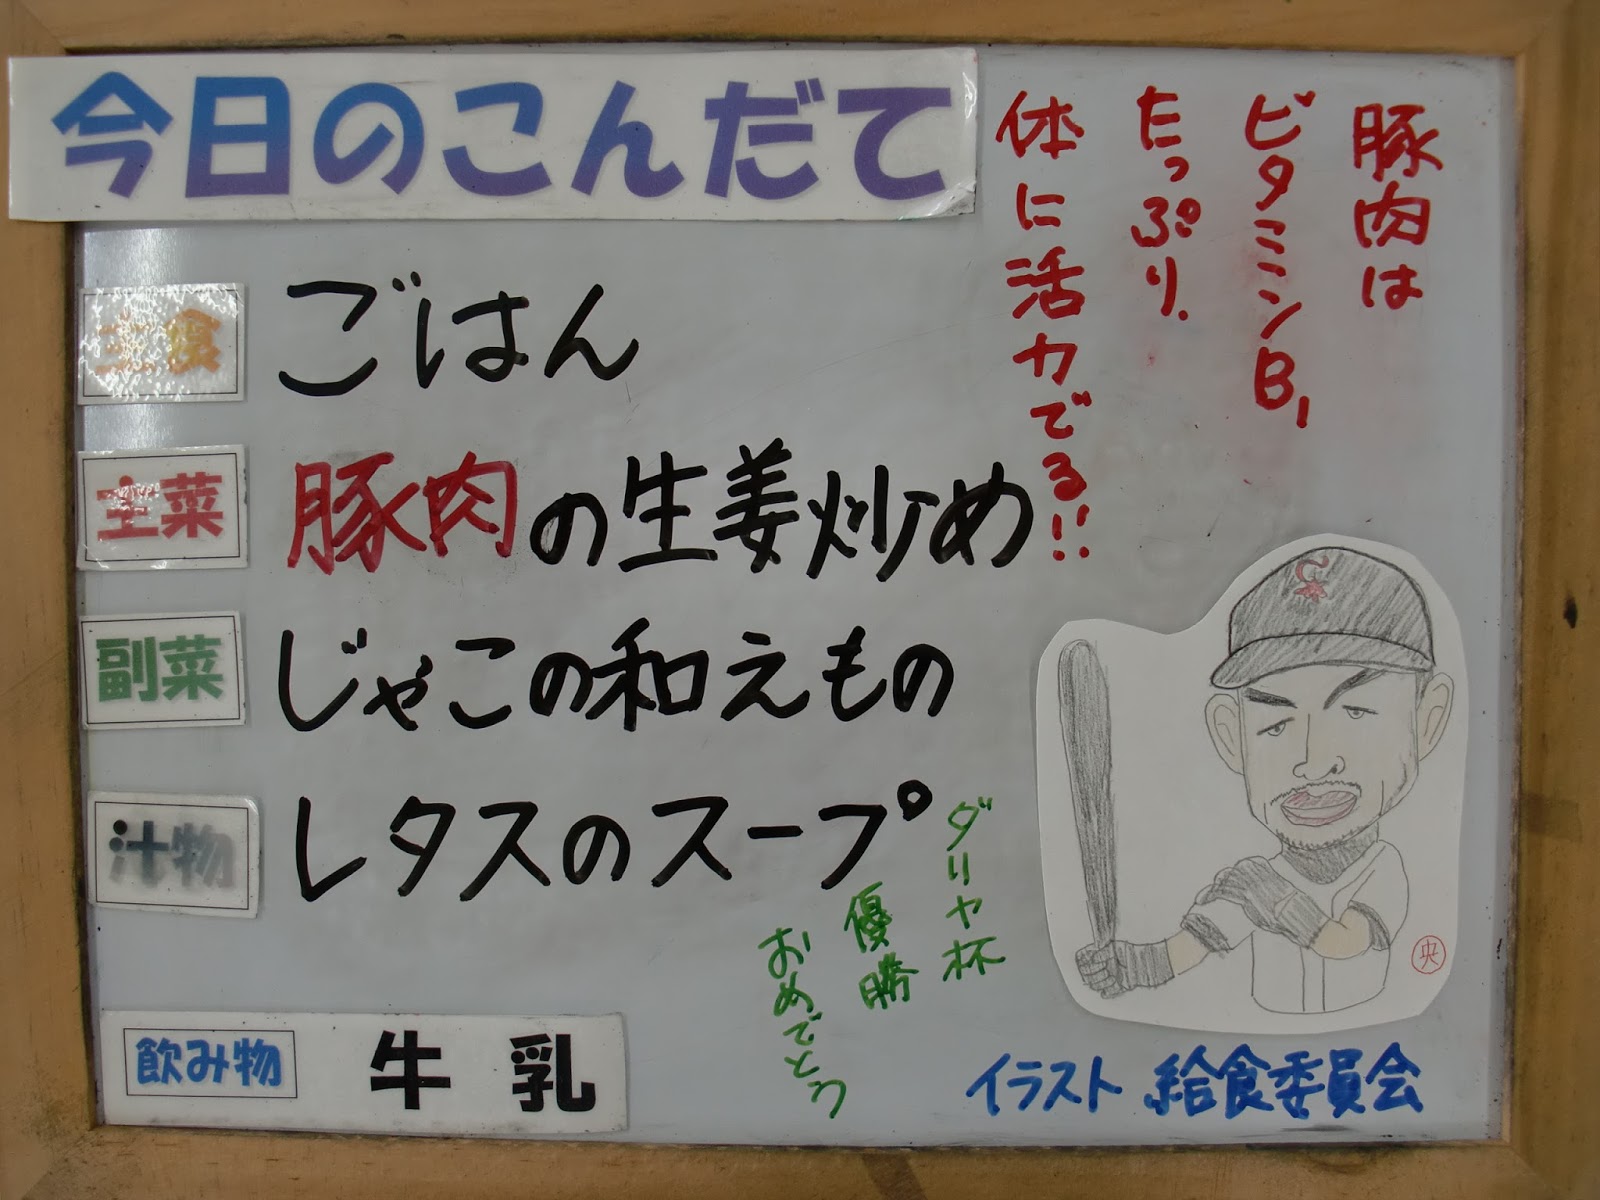 今日のこんだて
主食 ごはん
主菜 豚肉の生姜炒め
副菜 じゃこの和えもの
汁物 レタスのスープ
飲み物 牛乳
豚肉は
ビタミンB1
たっぷり.
体に活力でる!!
ダリヤ杯
優勝
おめでとう
央
イラスト 給食委員会